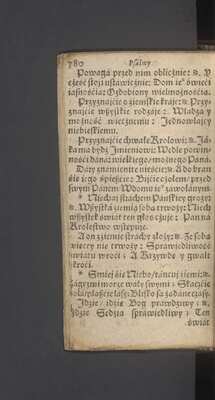 780 Psalmy
Powaga przed nim oblicznie: ꝛ. P
cześć stoi ustawicznie: Dom ie° świeci
iasnością: Ozdobiony wielmożnością.
Przyznaycie o ziemskie kraie: ꝛ. Przy
znaycie wszystkie rodzaie: Władzą y
możność wiecznemu: Jednowłaycy
niebieskiemu.
Przyznaycie chwałę Krolowi: ꝛ. Ja
ka ma bydź Jmieniowi: Wedle powin
ności dana: wielkiego, możnego Pana.
Dary znamienite nieście: ꝛ. A do bram
się iego spieście: Biycie czołem: przed
swym Panem W domu ie° zawołanym.
* Niechay strachem Pańskiey grozy: ꝛ.
Wszystka ziemia sobą trwoży: Niech
wszystek świat ten głos czuie: Pan na
Krolestwo wstępuie.
A on z ziemie strachy złoży: ꝛ. Ze sobą
wiecey nie trwoży: Sprawiedliwość
światu wroci: A krzywdę y gwałt
skroci.
* Smiey się Niebo / tańcuy ziemi: ꝛ.
zagrzmi morze wały swymi: Skaczcie
pola / płaście lasy: Blisko są żądane czasy.
Jdzie / idzie Bog prawdziwy: ꝛ.
Jdzie Sędzia sprawiedliwy: Ten
świat